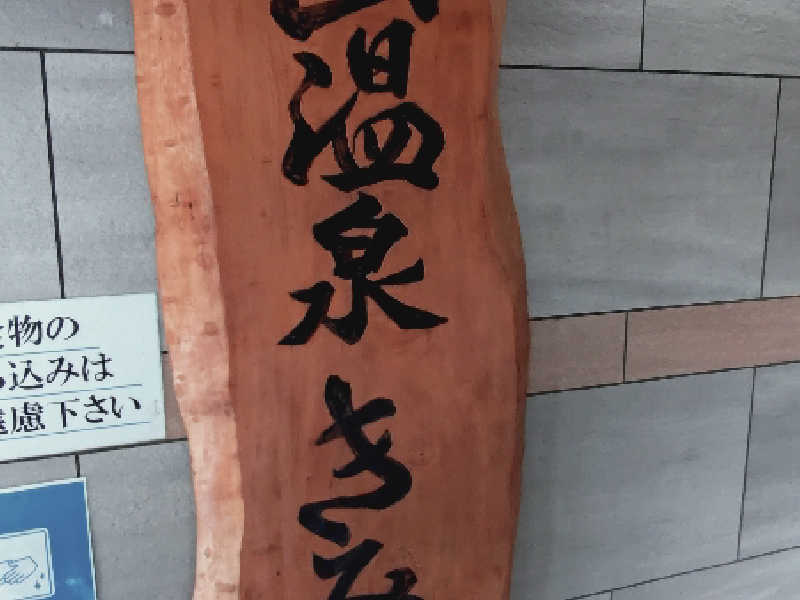 温泉き
物の
込みは
慮下さい